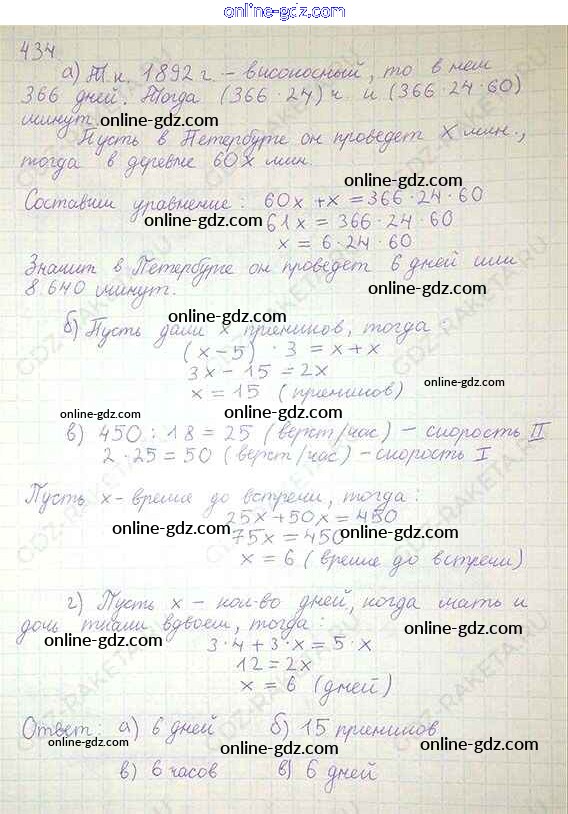 online-gdz.com online-gdz.com online-gdz.com
434
а) Т.к. 1892 г. – високосный, то в нем
366 дней. Тогда (366·24) ч и (366·24·60)
минут. online-gdz.com online-gdz.com
Пусть в Петербурге он проведет x мин.,
тогда в деревне 60x мин.
online-gdz.com
Составим уравнение: 60x + x = 366·24·60
online-gdz.com 61x = 366·24·60
x = 6·24·60 online-gdz.com
Значит в Петербурге он проведет 6 дней или
8 640 минут. online-gdz.com
online-gdz.com
б) Пусть дали x пряников, тогда:
(x – 5) · 3 = x + x
online-gdz.com
3x – 15 = 2x
x = 15 (пряников) online-gdz.com
online-gdz.com
в) 450 : 18 = 25 (верст/час) – скорость II
2·25 = 50 (верст/час) – скорость I
online-gdz.com
Пусть x – время до встречи, тогда:
25x + 50x = 450
online-gdz.com 75x = 450 online-gdz.com
x = 6 (время до встречи)
online-gdz.com
г) Пусть x – кол-во дней, когда мать и
дочь ткали вдвоем, тогда: online-gdz.com
online-gdz.com 3·4 + 3·x = 5·x
12 = 2x
x = 6 (дней) online-gdz.com
online-gdz.com
Ответ: а) 6 дней б) 15 пряников
online-gdz.com online-gdz.com online-gdz.com
в) 6 часов в) 6 дней
online-gdz.com online-gdz.com
GDZ-RAKETA.RU